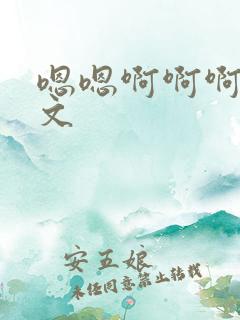 嗯嗯啊啊啊
文
安五娘
未经同意禁止转载